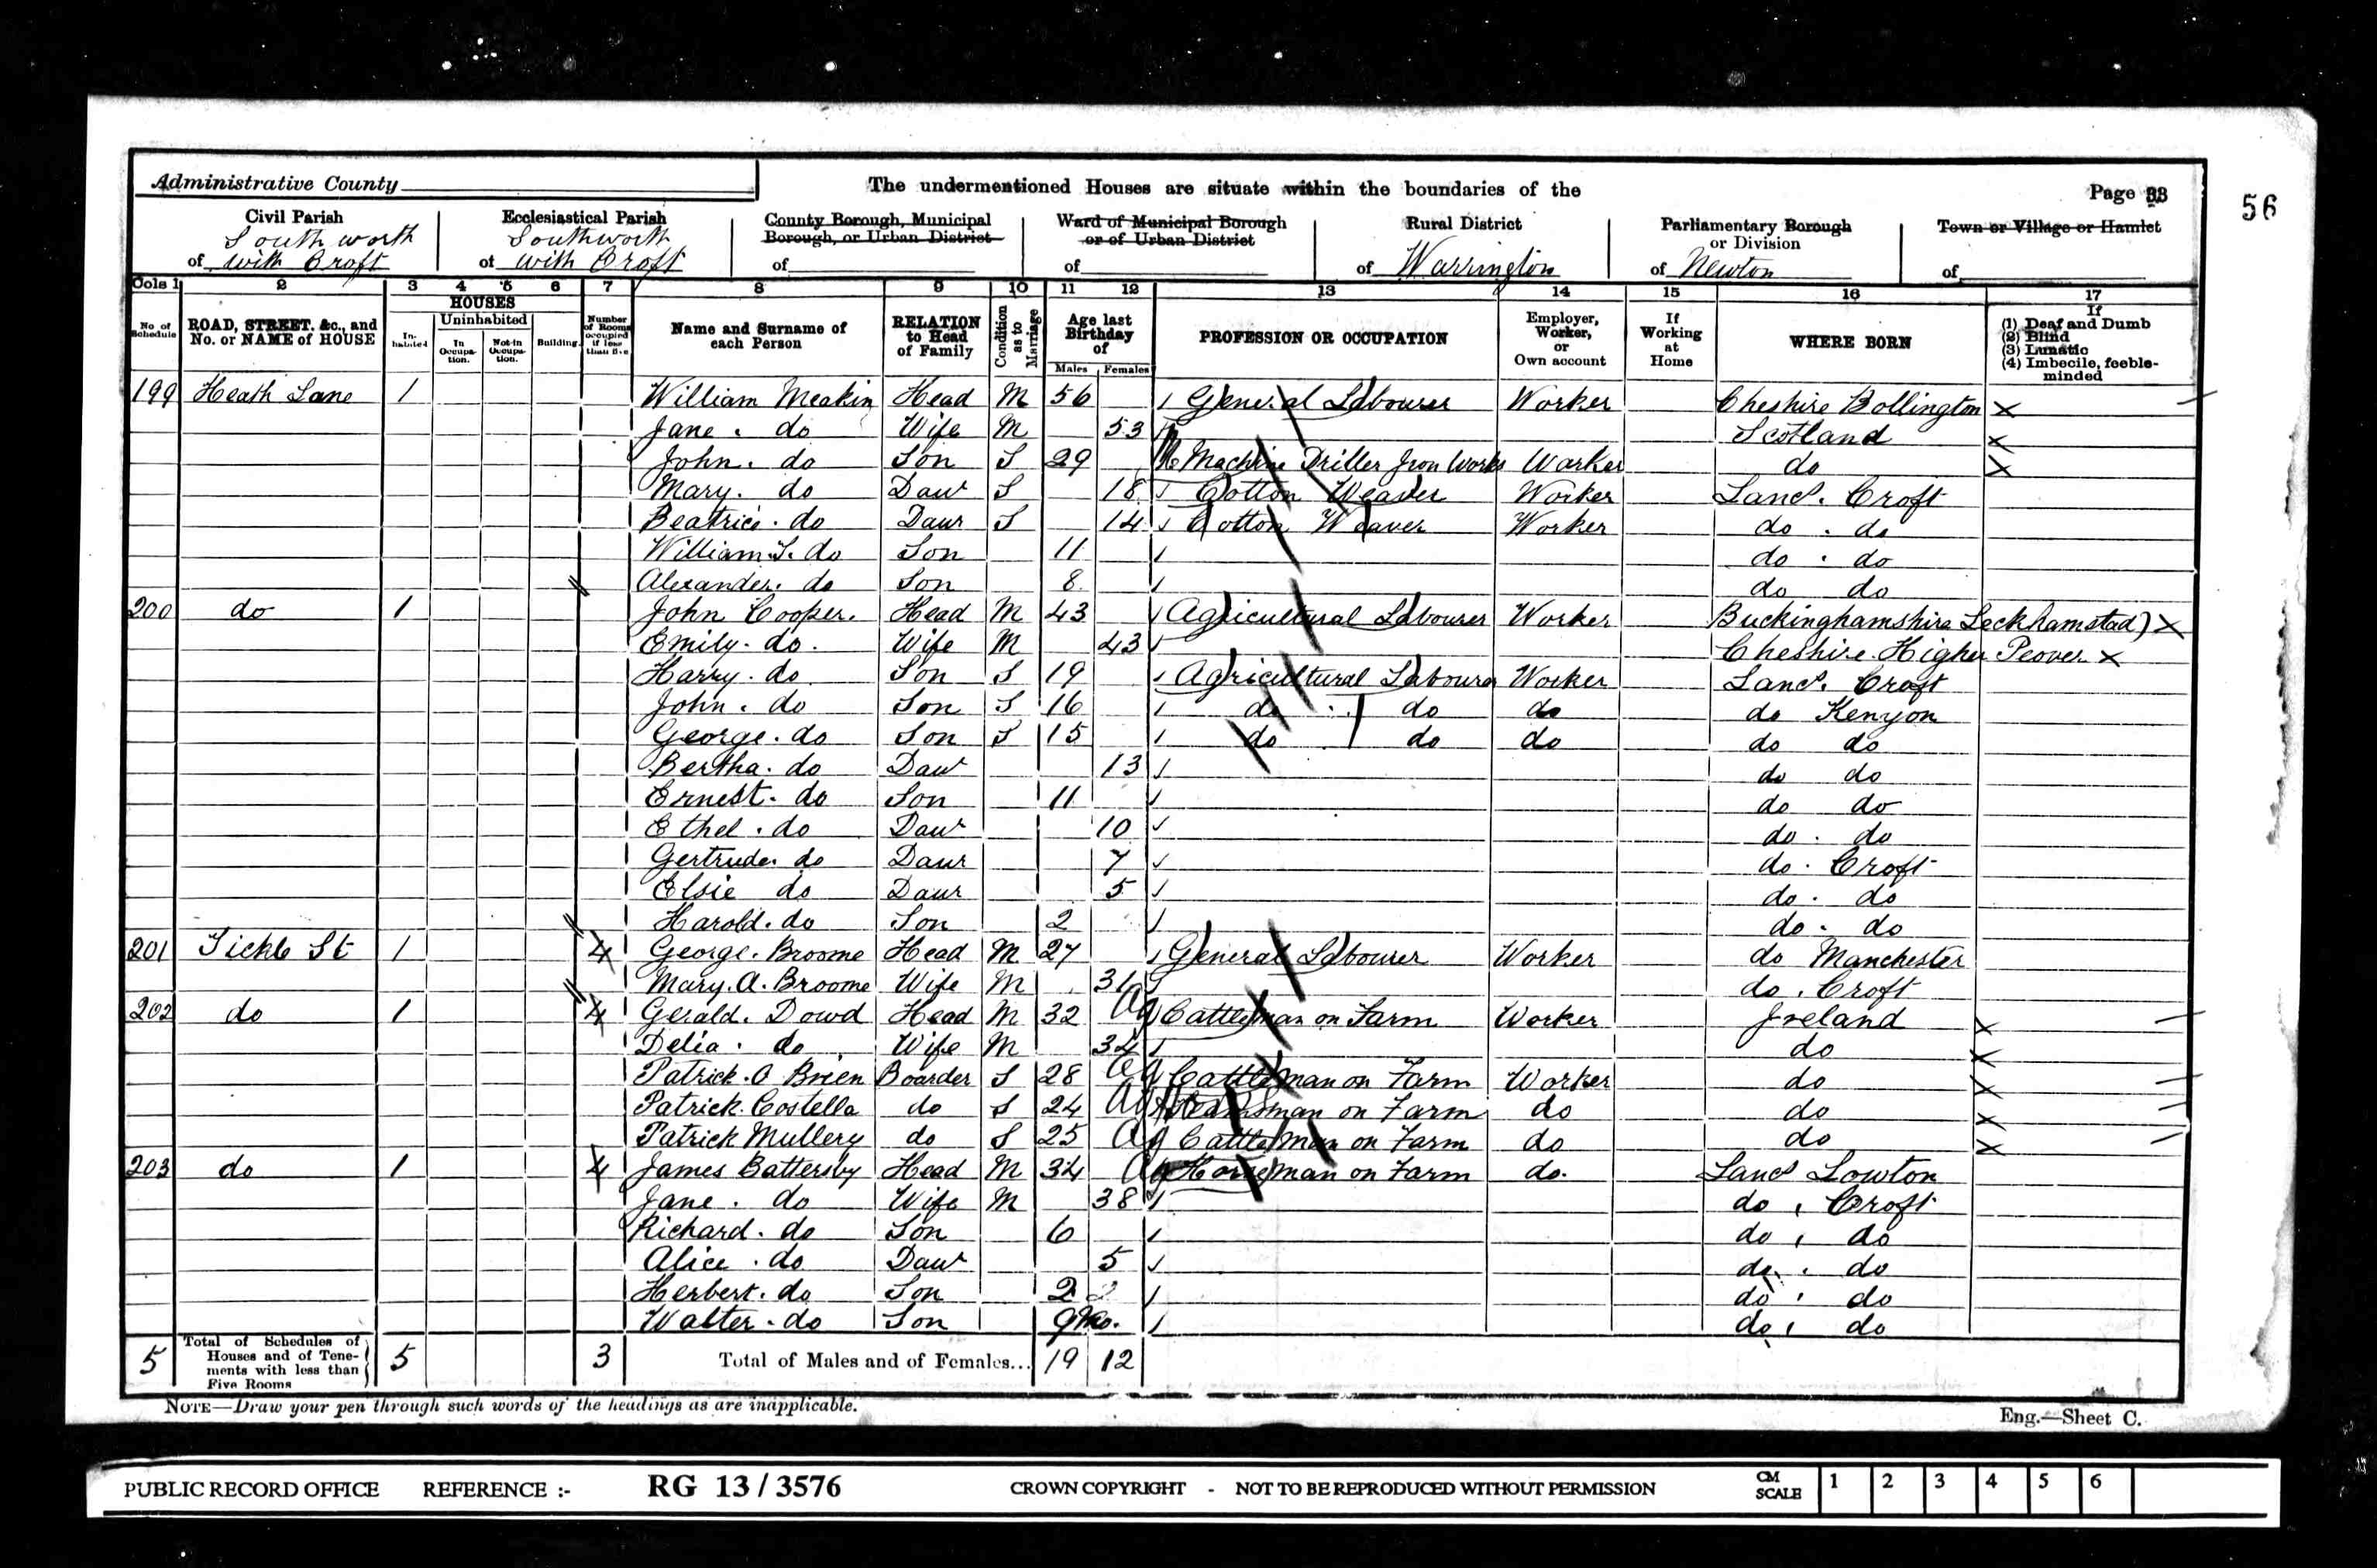 Administrative County
The undermentioned Houses are situate within the boundaries of the
Page 33
56
Civil Parish
of Southworth with Croft
Ecclesiastical Parish
of Southworth with Croft
County Borough, Municipal Borough, or Urban District
of
Ward of Municipal Borough or of Urban District
of
Rural District
of Warrington
Parliamentary Borough or Division
of Newton
Town or Village or Hamlet
of
Cols 1 2 3 4 5 6 7 8 9 10 11 12 13 14 15 16 17
No of Schedule
ROAD, STREET, &c., and No. or NAME of HOUSE
HOUSES
Inhabited
Uninhabited
In Occupation.
Not in Occupation.
Building
Number of Rooms occupied if less than five
Name and Surname of each Person
RELATION to Head of Family
Condition as to Marriage
Age last Birthday of
Males Females
PROFESSION OR OCCUPATION
Employer, Worker, or Own account
If Working at Home
WHERE BORN
If
(1) Deaf and Dumb
(2) Blind
(3) Lunatic
(4) Imbecile, feeble-minded
199 Heath Lane 1 William Meakin Head M 56 General Labourer Worker Cheshire Bollington X
Jane. do Wife M 53 Scotland X
John. do Son S 29 Machine Driller Iron Works Worker do X
Mary. do Daur S 18 Cotton Weaver Worker Lancs. Croft
Beatrice. do Daur S 14 Cotton Weaver Worker do. do
William. do Son 11 do. do
Alexander. do Son 8 do do
200 do 1 John Cooper. Head M 43 Agricultural Labourer Worker Buckinghamshire Leckhamstad) X
Emily. do. Wife M 43 Cheshire. Higher Peover X
Harry. do. Son S 19 Agricultural Labourer Worker Lancs. Croft
John. do Son S 16 do do do do Kenyon
George. do Son S 15 do do do do do
Bertha. do Daur 13 do do
Ernest. do Son 11 do do
Ethel. do Daur 10 do. do
Gertrude. do Daur 7 do. Croft
Elsie do Daur 5 do. do
Harold. do Son 2 do. do
201 Tickle St 1 4 George. Broome Head M 27 General Labourer Worker do Manchester
Mary. A. Broome Wife M 31 do. Croft
202 do 1 4 Gerald. Dowd Head M 32 Ag Cattleman on Farm Worker Ireland X
Delia. do Wife M 34 do X
Patrick. O Brien Boarder S 28 Ag Cattleman on Farm Worker do X
Patrick. Costella do S 24 Ag man on Farm do do X
Patrick Mullery do S 25 Ag Cattleman on Farm do do X
203 do 1 4 James Battersby Head M 34 Ag Horseman on Farm do. Lancs Lowton
Jane. do Wife M 38 do, Croft
Richard. do Son 6 do, do
Alice. do Daur 5 do. do
Herbert. do Son 2 do, do
Walter. do Son 9 Mo. do, do
5 Total of Schedules of Houses and of Tenements with less than Five Rooms 5 3 Total of Males and of Females... 19 12
NOTE—Draw your pen through such words of the headings as are inapplicable.
Eng.—Sheet C.
PUBLIC RECORD OFFICE REFERENCE :- RG 13 / 3576 CROWN COPYRIGHT - NOT TO BE REPRODUCED WITHOUT PERMISSION CM SCALE 1 2 3 4 5 6